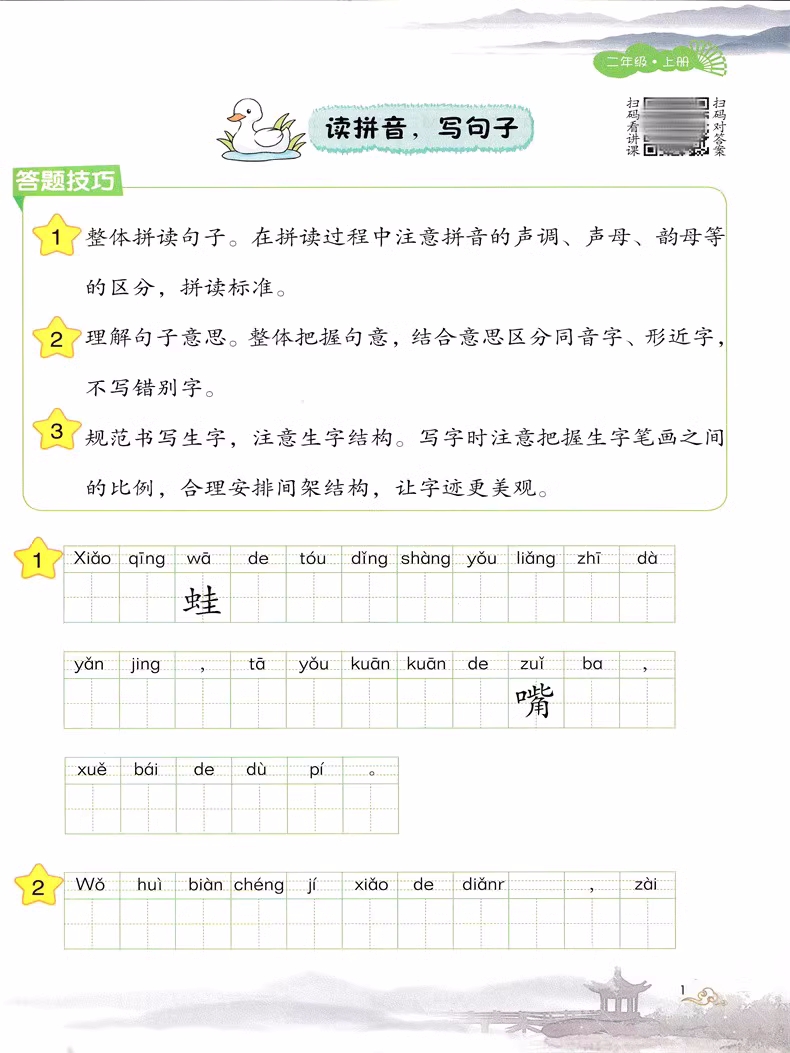 二年级·上册
扫码看讲课
扫码对答案
读拼音，写句子
答题技巧
1 整体拼读句子。在拼读过程中注意拼音的声调、声母、韵母等
的区分，拼读标准。
2 理解句子意思。整体把握句意，结合意思区分同音字、形近字，
不写错别字。
3 规范书写生字，注意生字结构。写字时注意把握生字笔画之间
的比例，合理安排间架结构，让字迹更美观。
1 Xiǎo qīng wā de tóu dǐng shàng yǒu liǎng zhī dà
蛙
yǎn jing ， tā yǒu kuān kuān de zuǐ ba ，
嘴
xuě bái de dù pí 。
2 Wǒ huì biàn chéng jí xiǎo de diǎnr ， zài
1